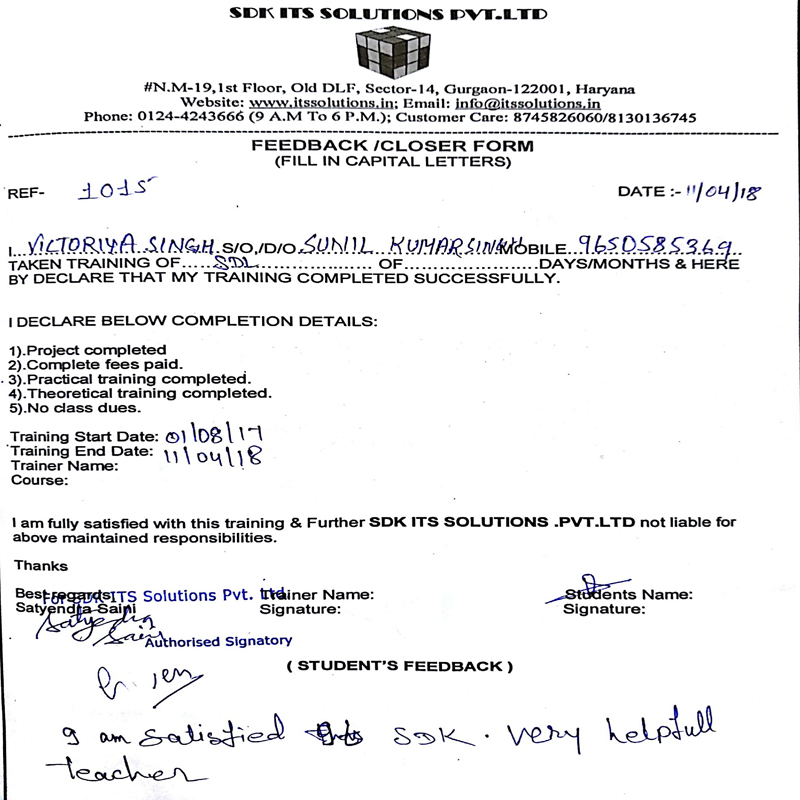 SDK ITS SOLUTIONS PVT.LTD
#N.M-19,1st Floor, Old DLF, Sector-14, Gurgaon-122001, Haryana
Website: www.itssolutions.in; Email: info@itssolutions.in
Phone: 0124-4243666 (9 A.M To 6 P.M.); Customer Care: 8745826060/8130136745
FEEDBACK /CLOSER FORM
(FILL IN CAPITAL LETTERS)
REF- 1015 DATE :- 11/04/18
I...VICTORIYA SINGH.S/O,/D/O.SUNIL KUMAR SINGH MOBILE. 9650585369
TAKEN TRAINING OF.....SDL..................... OF.......................DAYS/MONTHS & HERE
BY DECLARE THAT MY TRAINING COMPLETED SUCCESSFULLY.
I DECLARE BELOW COMPLETION DETAILS:
1).Project completed
2).Complete fees paid.
3).Practical training completed.
4).Theoretical training completed.
5).No class dues.
Training Start Date: 01/08/17
Training End Date: 11/04/18
Trainer Name:
Course:
I am fully satisfied with this training & Further SDK ITS SOLUTIONS .PVT.LTD not liable for
above maintained responsibilities.
Thanks
Best regards For SDK ITS Solutions Pvt. Ltd. Trainer Name: Students Name:
Satyendra Saini Signature: Signature:
Satyendra
Saini
Authorised Signatory
( STUDENT'S FEEDBACK )
I am satisfied SDK . very helpfull
teacher